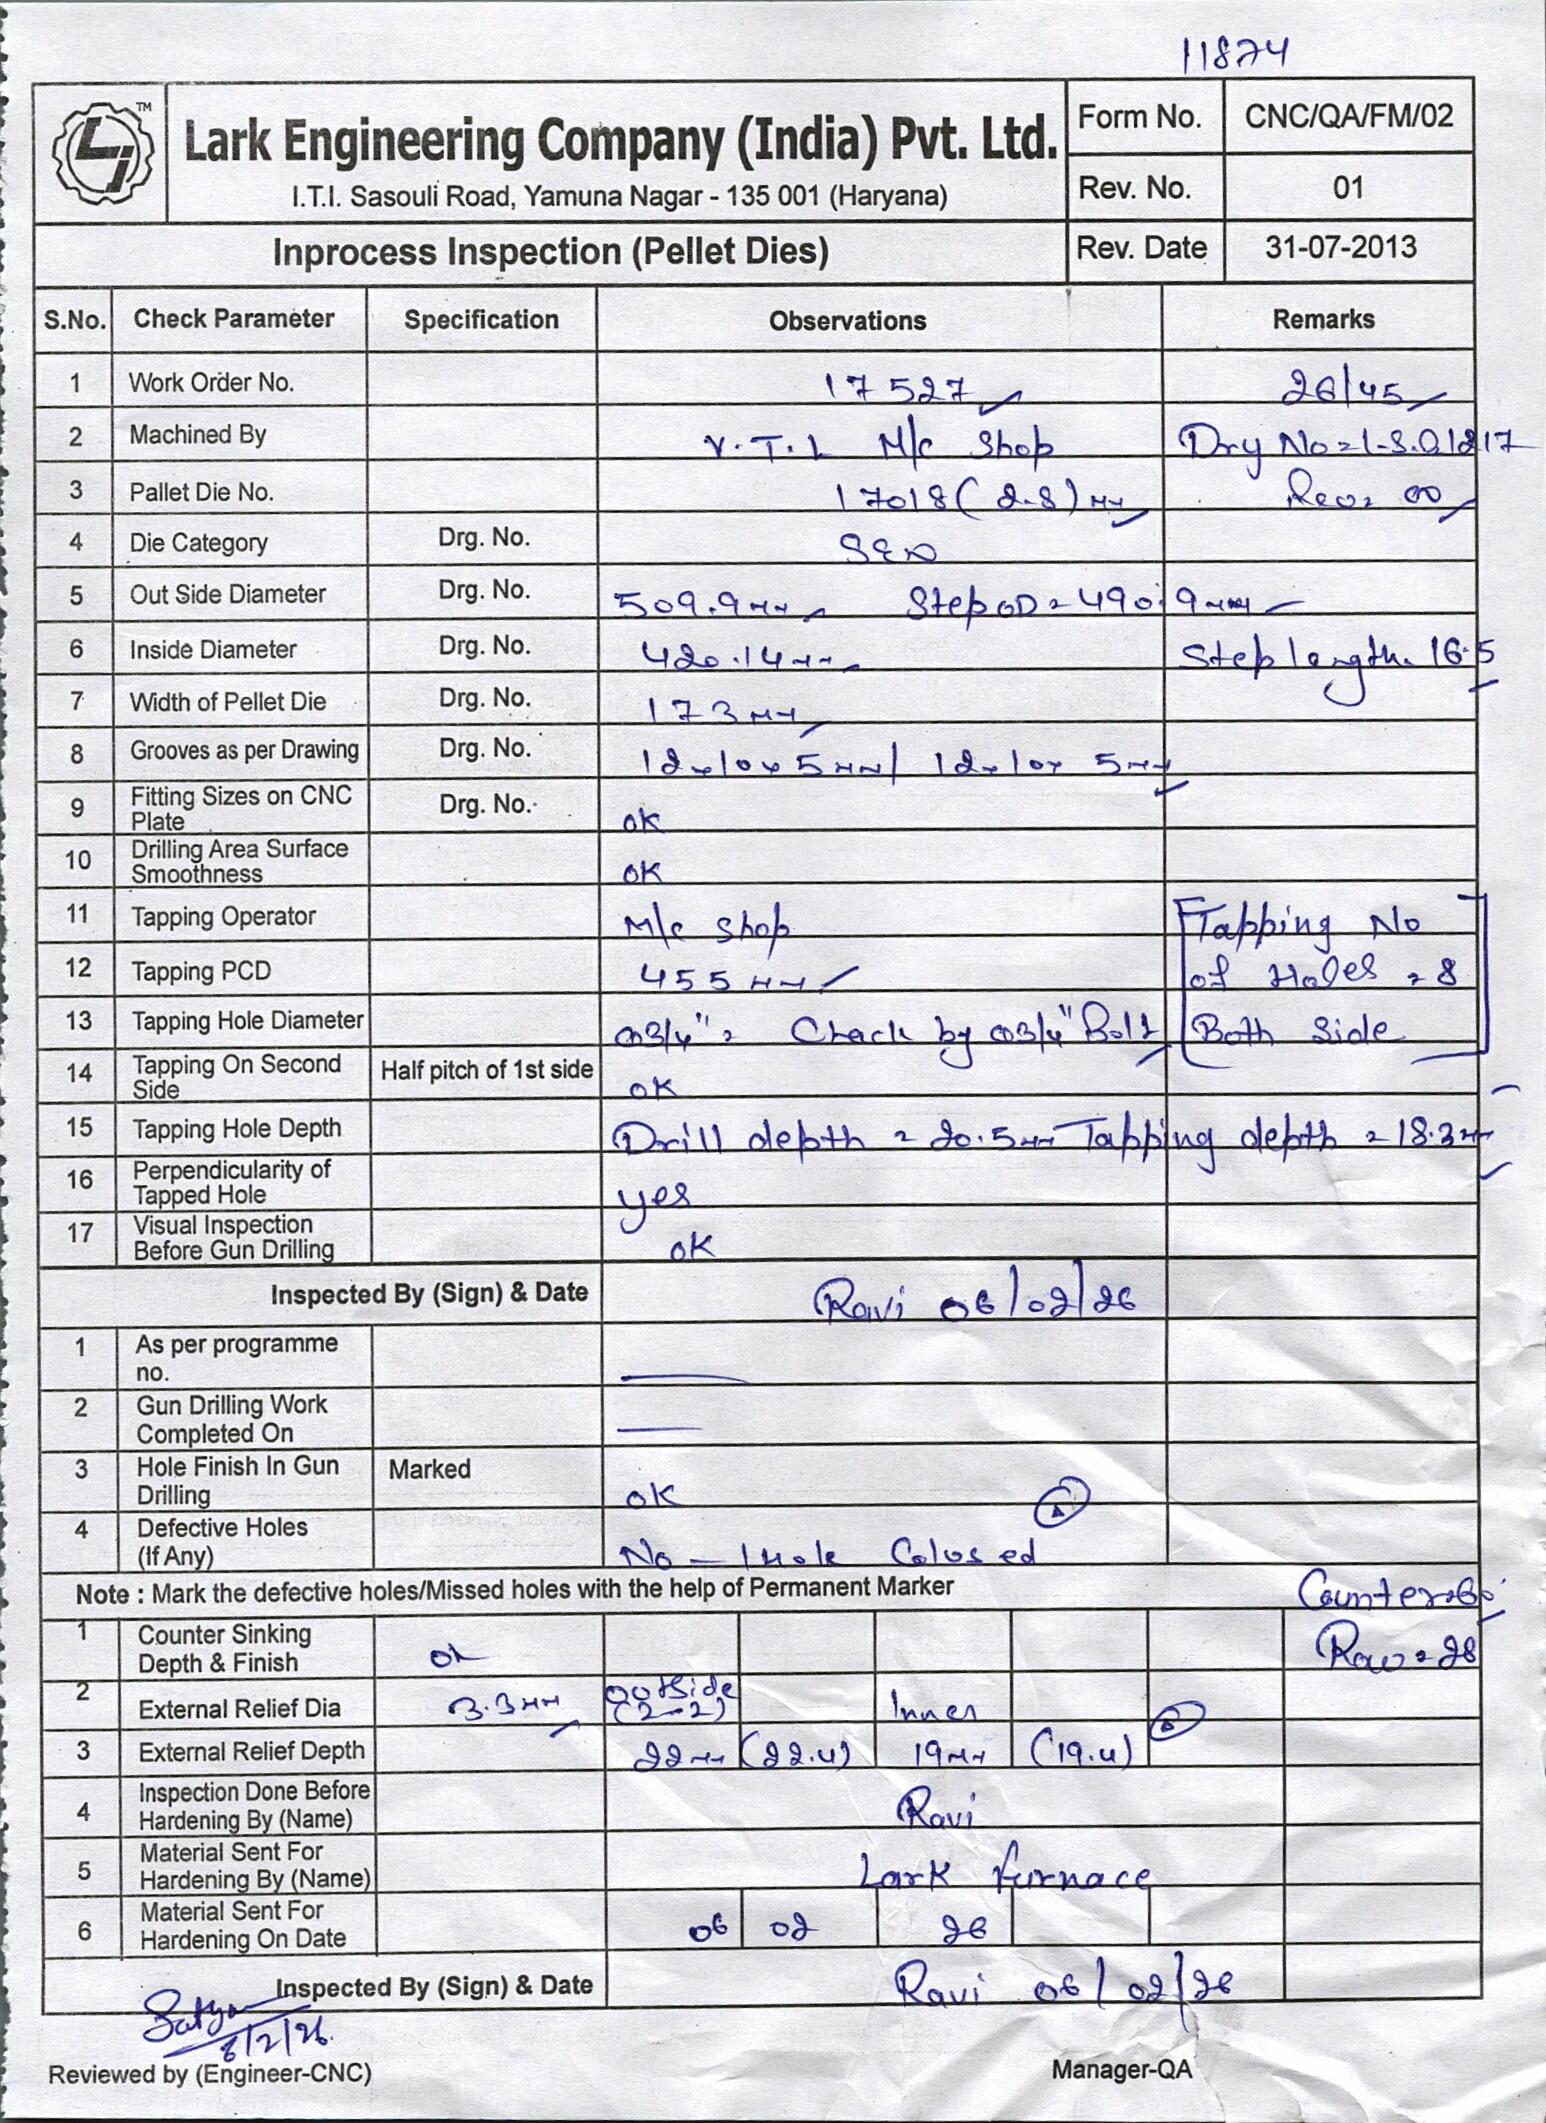 11874
LJ TM
Lark Engineering Company (India) Pvt. Ltd.
I.T.I. Sasouli Road, Yamuna Nagar - 135 001 (Haryana)
Form No. CNC/QA/FM/02
Rev. No. 01
Inprocess Inspection (Pellet Dies)
Rev. Date 31-07-2013
S.No. Check Parameter Specification Observations Remarks
1 Work Order No. 17527 26/45
2 Machined By V.T.L M/c Shop
3 Pallet Die No. 17018 (2.8) mm Rev= 00
4 Die Category Drg. No.
5 Out Side Diameter Drg. No. 509.9mm Step OD = 490.9mm
6 Inside Diameter Drg. No. 420.14mm Step length= 16.5
7 Width of Pellet Die Drg. No. 173mm
8 Grooves as per Drawing Drg. No. 12x10x5mm/ 12x10x5mm
9 Fitting Sizes on CNC Plate Drg. No. ok
10 Drilling Area Surface Smoothness ok
11 Tapping Operator M/c shop Tapping No
12 Tapping PCD 455mm of Holes = 8
13 Tapping Hole Diameter Ø3/4" = Check by Ø3/4" Bolt Both Side
14 Tapping On Second Side Half pitch of 1st side ok
15 Tapping Hole Depth Drill depth = 20.5mm Tapping depth = 18.3mm
16 Perpendicularity of Tapped Hole yes
17 Visual Inspection Before Gun Drilling ok
Inspected By (Sign) & Date Ravi 06/02/26
1 As per programme no.
2 Gun Drilling Work Completed On
3 Hole Finish In Gun Drilling Marked ok
4 Defective Holes (If Any) No - 1 Hole Colused
Note : Mark the defective holes/Missed holes with the help of Permanent Marker
1 Counter Sinking Depth & Finish ok Row = 28
2 External Relief Dia 3.3mm outside (2-2) Inner
3 External Relief Depth 22mm (22.4) 19mm (19.4)
4 Inspection Done Before Hardening By (Name) Ravi
5 Material Sent For Hardening By (Name) Lark furnace
6 Material Sent For Hardening On Date 06 02 26
Inspected By (Sign) & Date Ravi 06/02/26
Satyam
6/2/26.
Reviewed by (Engineer-CNC) Manager-QA